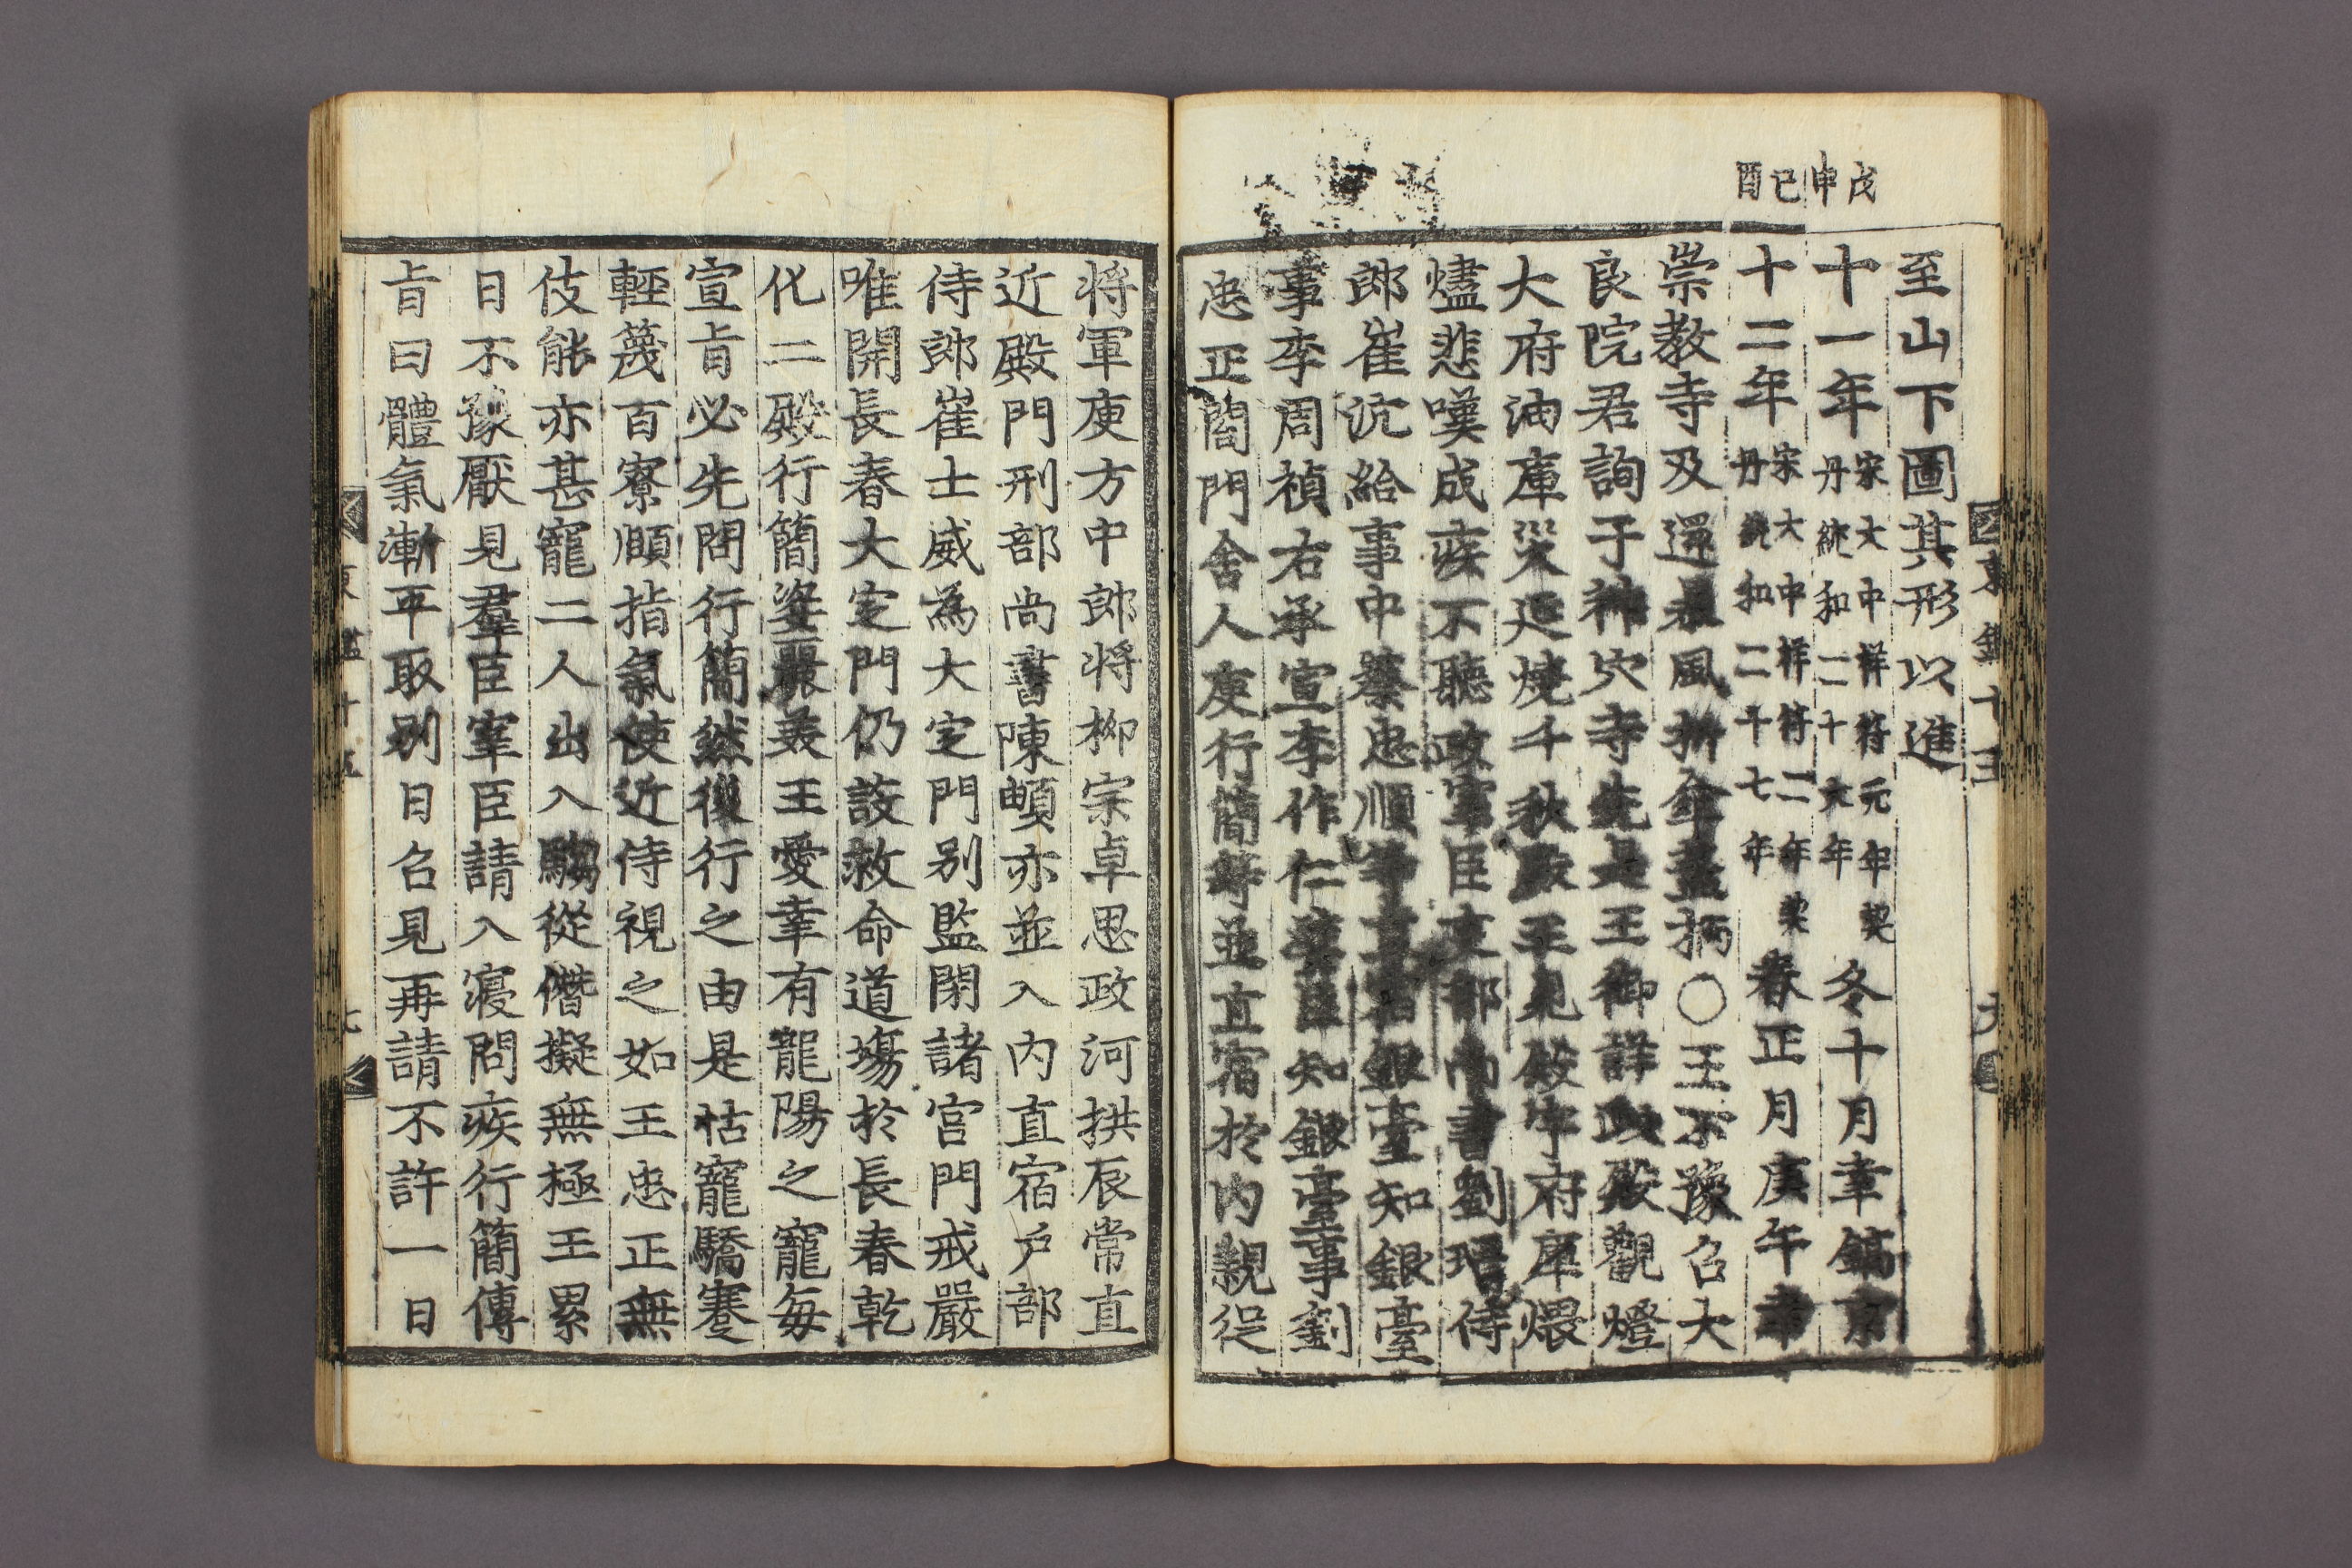 戊申
己酉
至山下圖其形以進
十一年宋大中祥符元年契丹統和二十六年冬十月幸鎬京
十二年宋大中祥符二年契丹統和二十七年春正月庚午幸
崇教寺及還暴風折傘蓋柄〇王不豫召大
良院君詢于神穴寺先是王御詳政殿觀燈
大府油庫災延燒千秋殿王見殿宇府庫煨
燼悲嘆成疾不聽政宰臣吏部尚書劉瑨侍
郎崔沆給事中蔡忠順等直宿銀臺知銀臺
事李周禎右承宣李作仁 知銀臺事劉
忠正閤門舍人庾行簡等並直宿於內親從
將軍庾方中郎將柳宗卓思政河拱辰常直
近殿門刑部尚書陳頔亦並入內直宿戶部
侍郎崔士威為大定門别監閉諸宮門戒嚴
唯開長春大定門仍設救命道場於長春乾
化二殿行簡姿麗美王愛幸有龍陽之寵每
宣旨必先問行簡然後行之由是怙寵驕蹇
輕蔑百寮頤指氣使近侍視之如王忠正無
伎能亦甚寵二人出入騶從僭擬無極王累
日不豫厭見羣臣宰臣請入寢問疾行簡傳
旨曰體氣漸平取别日召見再請不許一日
東鑑十五
六
東鑑十五
七